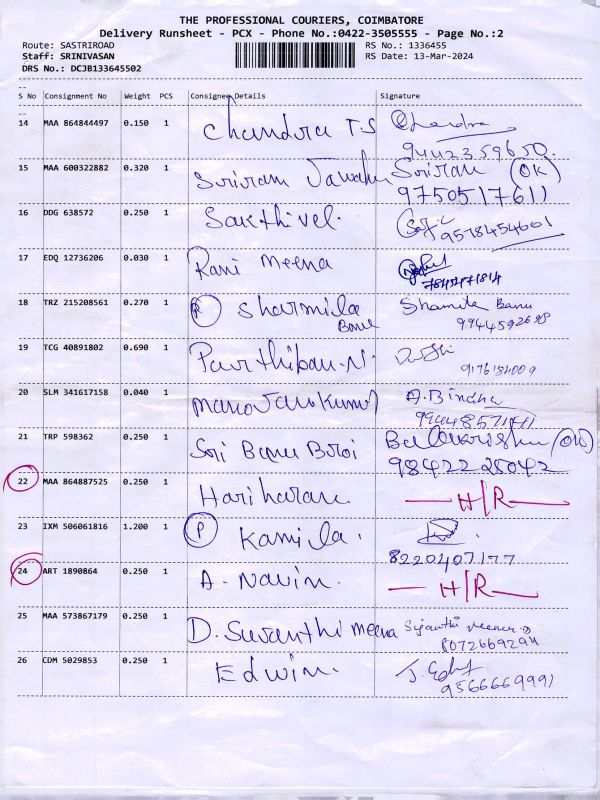 THE PROFESSIONAL COURIERS, COIMBATORE
Delivery Runsheet - PCX - Phone No.:0422-3505555 - Page No.:2
Route: SASTRIROAD RS No.: 1336455
Staff: SRINIVASAN RS Date: 13-Mar-2024
DRS No.: DCJB133645502
S No Consignment No Weight PCS Consignee Details Signature
14 MAA 864844497 0.150 1 Chandra T.S Chandra
9442359650
15 MAA 600322882 0.320 1 Sriram Sriram (OK)
9750517611
16 DDG 638572 0.250 1 Sakthivel.
9578454601
17 EDQ 12736206 0.030 1 Rani Meena
18 TRZ 215208561 0.270 1 (R) Sharmila Shamila Banu
Banu
19 TCG 40891802 0.690 1 Parthiban.N.
20 SLM 341617158 0.040 1 Manoj A. Bindhu
21 TRP 598362 0.250 1 Sri Banu (OK)
98422 28042
22 MAA 864887525 0.250 1 Hariharan. H/R
23 IXM 506061816 1.200 1 (P) Kamila.
8220407177
24 ART 1890864 0.250 1 A. Navin. H/R
25 MAA 573867179 0.250 1 D. Suvanthi Meena
26 CDM 5029853 0.250 1 Edwin.
9566669991